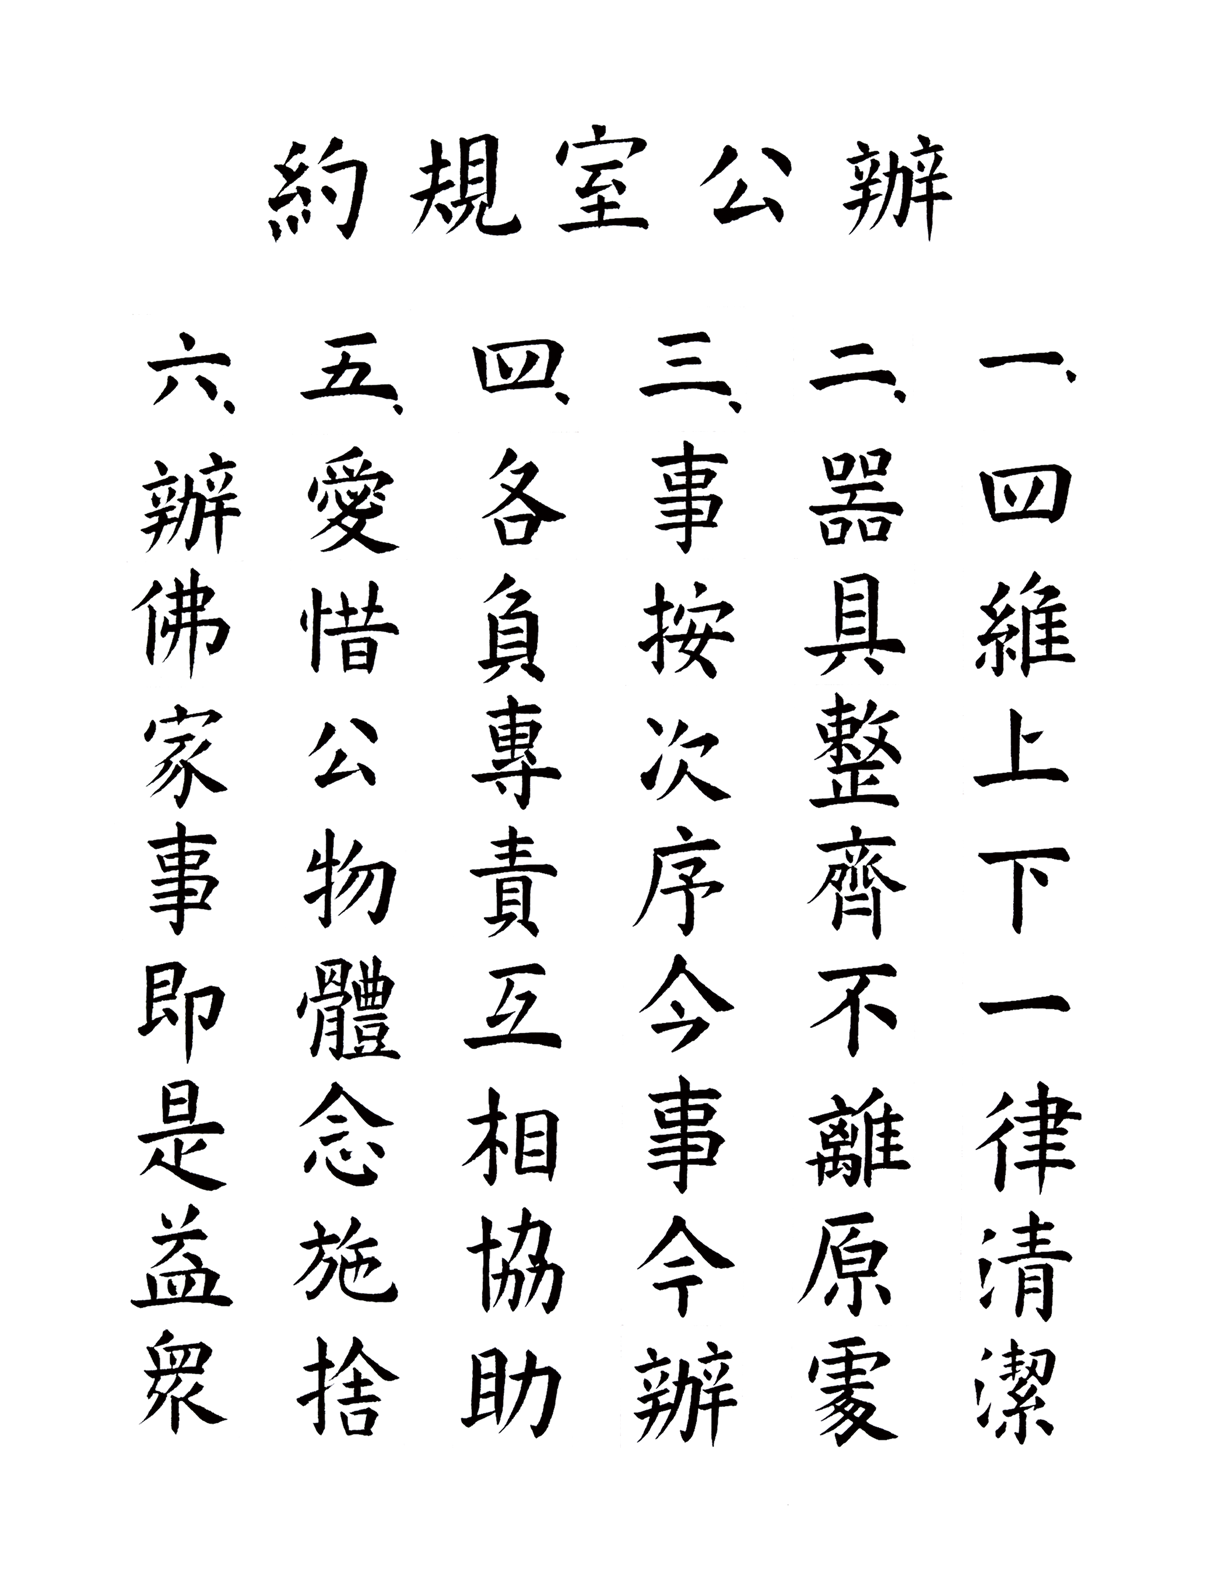 辦公室規約
一、四維上下一律清潔
二、器具整齊不離原處
三、事按次序今事今辦
四、各負專責互相協助
五、愛惜公物體念施捨
六、辦佛家事即是益眾